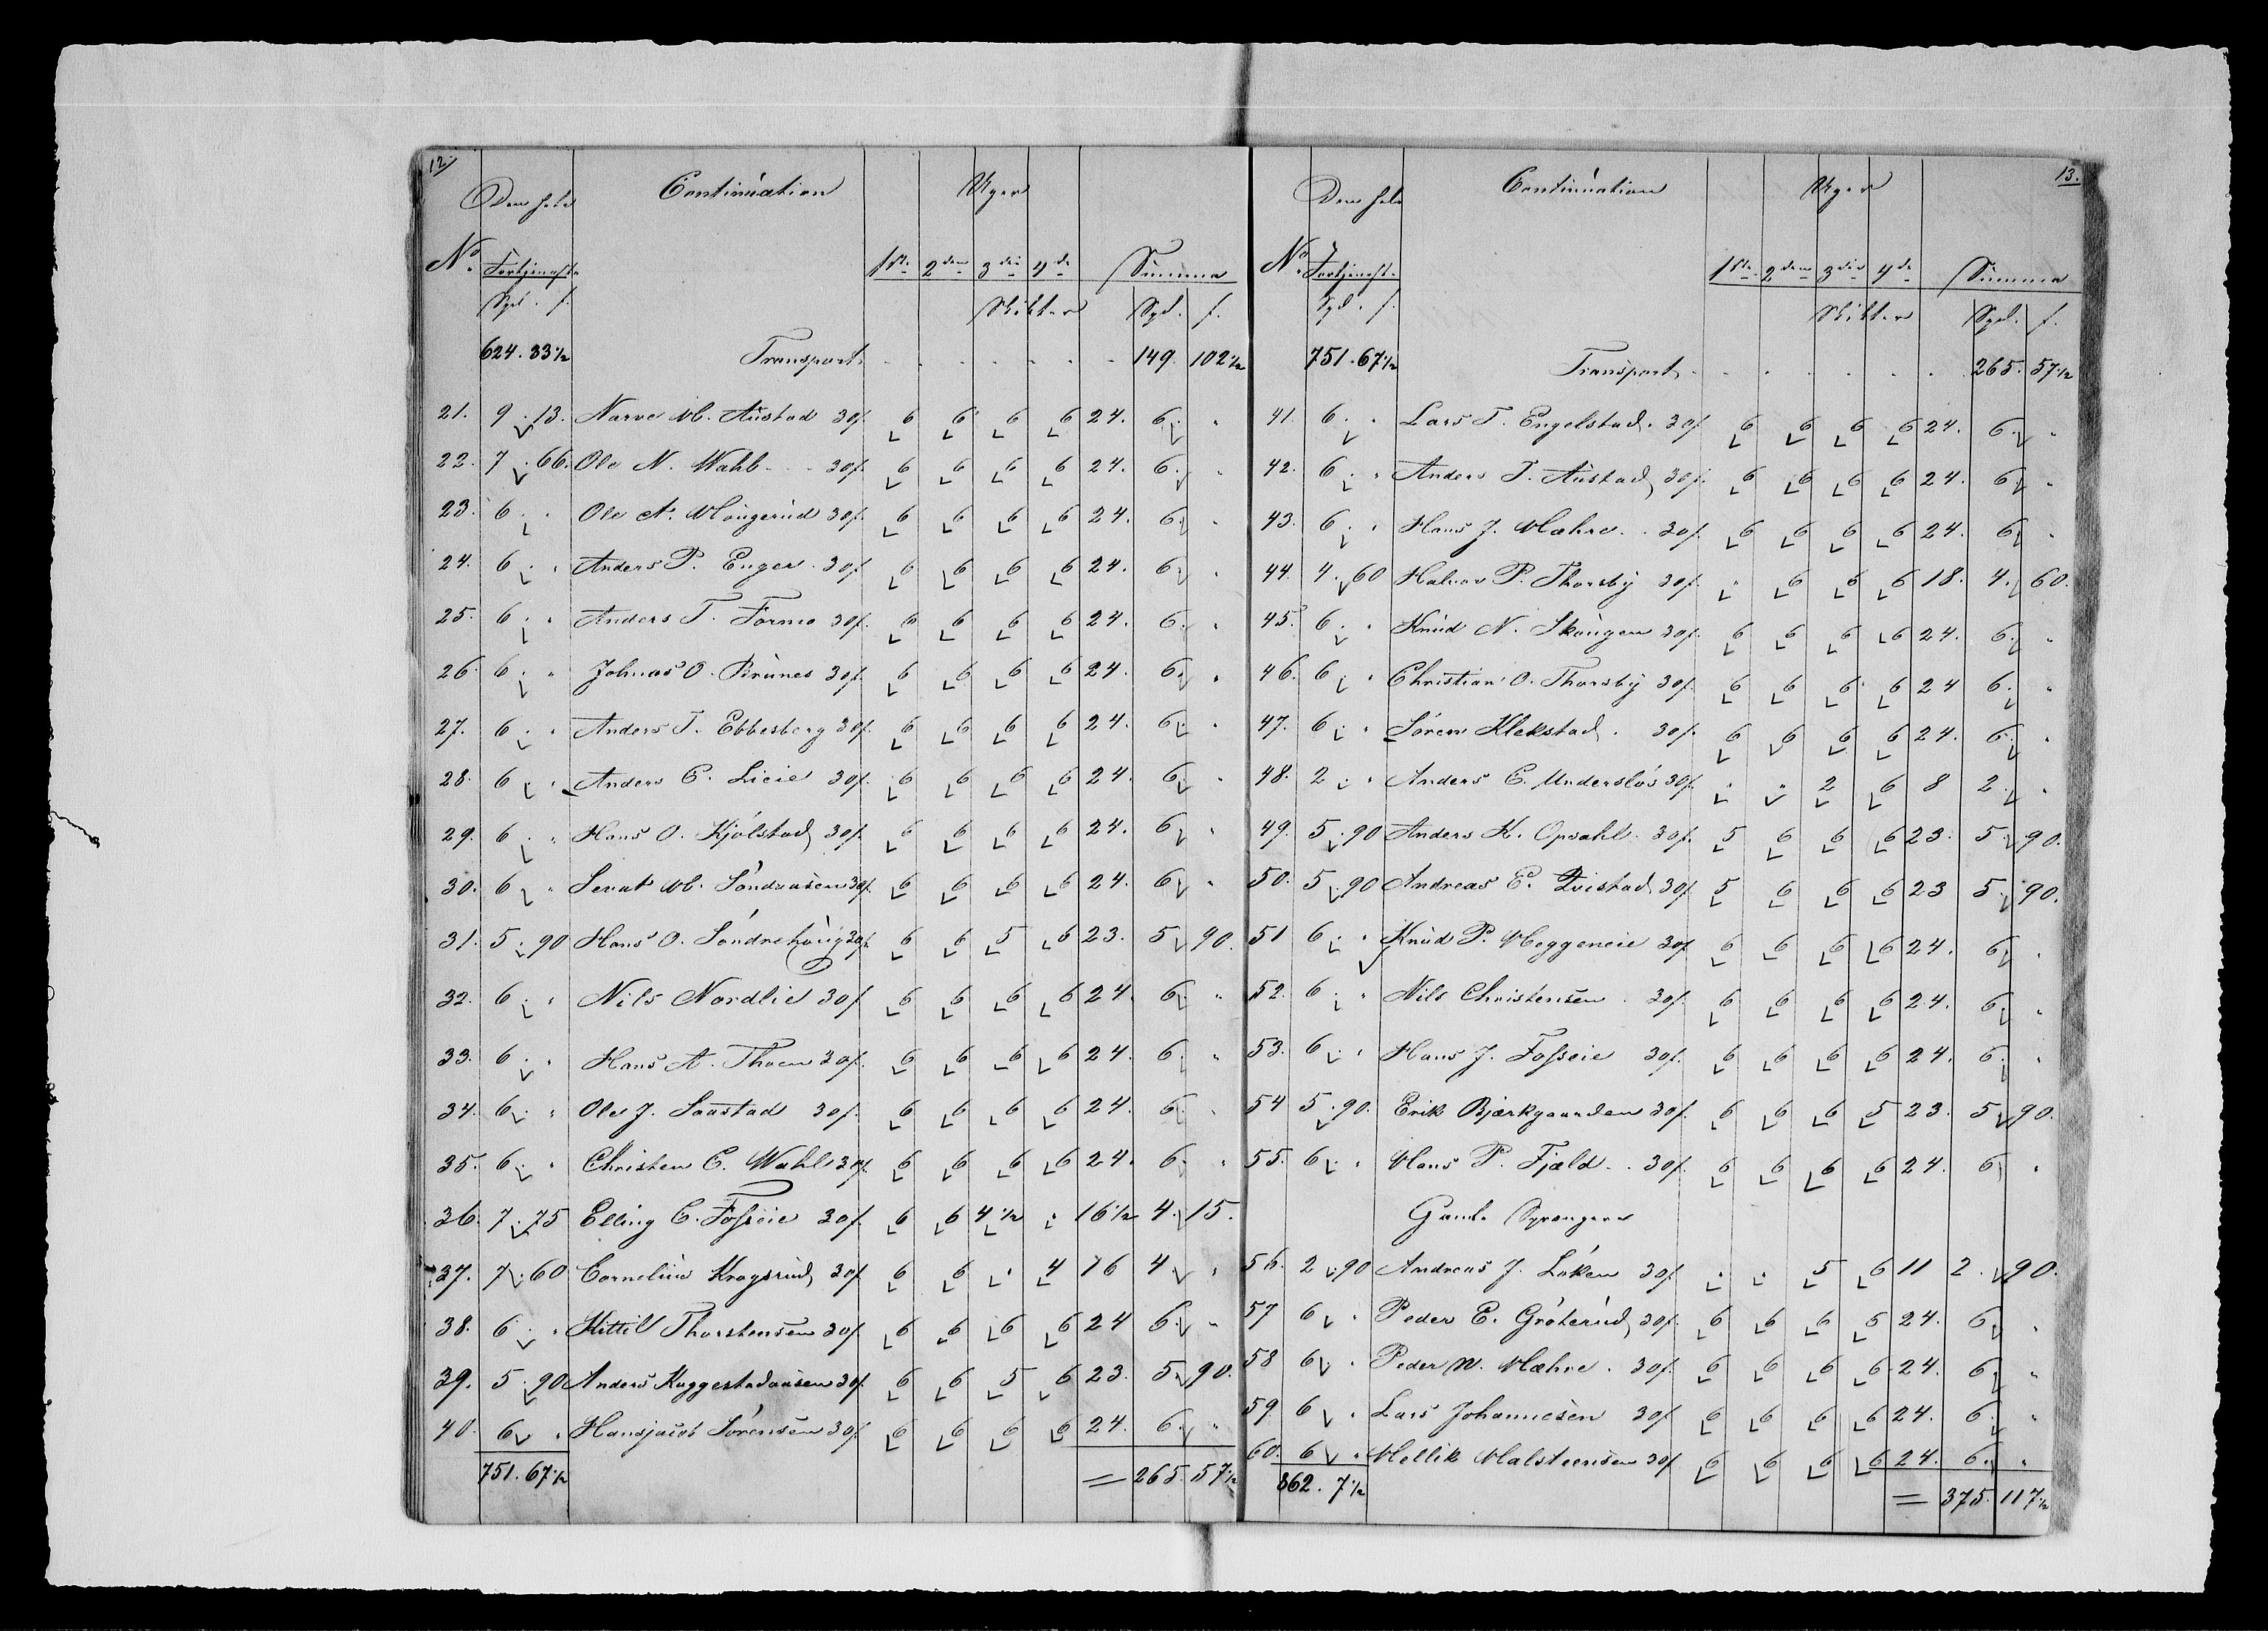 12.
Den hele Continuation Uger
No. Fortjeneste 1ste 2den 3die 4de Summa
Spd. s. Skikter Spd. s.
624. 83 1/2 Transport 149. 102 1/2
21. 9. 13. Narve M. Austad 30s. 6 6 6 6 24. 6. "
22. 7. 66. Ole N. Wahl 30s. 6 6 6 6 24. 6. "
23. 6. " Ole A. Mougerud 30s. 6 6 6 6 24. 6. "
24. 6. " Anders P. Enger 30s. 6 6 6 6 24. 6. "
25. 6. " Anders T. Formo 30s. 6 6 6 6 24. 6. "
26. 6. " Johnas O. Brunes 30s. 6 6 6 6 24. 6. "
27. 6. " Anders T. Ebbesberg 30s. 6 6 6 6 24. 6. "
28. 6. " Anders C. Lieie 30s. 6 6 6 6 24. 6. "
29. 6. " Hans O. Kjölstad 30s. 6 6 6 6 24. 6. "
30. 6. " M. 30s. 6 6 6 6 24. 6. "
31. 5. 90 Hans O. Söndrehoug 30s. 6 6 5 6 23. 5. 90.
32. 6. " Nils Nordlie 30s. 6 6 6 6 24. 6. "
33. 6. " Hans A. Thoen 30s. 6 6 6 6 24. 6. "
34. 6. " Ole J. Saustad 30s. 6 6 6 6 24. 6. "
35. 6. " Christen C. Wahl 30s. 6 6 6 6 24. 6. "
36. 7. 75 Elling C. Fosseie 30s. 6 6 4 1/2 " 16 1/2 4. 15.
37. 7. 60 Cornelius Kragsrud 30s. 6 6 " 4 16 4. "
38. 6. " Kittil Thorstensen 30s. 6 6 6 6 24 6. "
39. 5. 90 Anders Kuggestadaasen 30s. 6 6 5 6 23. 5. 90.
40. 6. " Hansjacob Sörensen 30s. 6 6 6 6 24. 6. "
751. 67 1/2 = 265. 57 1/2
13.
Den hele Continuation Uger
No. Fortjenest. 1ste 2den 3die 4de Summa
Spd. s. Skikter Spd. s.
751. 67 1/2 Transport 265. 57 1/2
41. 6. " Lars T. Engelstad. 30s. 6 6 6 6 24. 6. "
42. 6. " Anders T. Austad 30s. 6 6 6 6 24. 6. "
43. 6. " Hans J. Mæhre 30s. 6 6 6 6 24. 6. "
44. 4. 60 Halvor P. Thorsby 30s. " 6 6 6 18. 4. 60.
45. 6. " Knud N. Skougen 30s. 6 6 6 6 24. 6. "
46. 6. " Christian O. Thorsby 30s. 6 6 6 6 24 6. "
47. 6. " Sören Klekstad. 30s. 6 6 6 6 24. 6. "
48. 2. " Anders C. Underslös 30s. " " 2 6 8 2. "
49. 5. 90 Anders K. Opsahl 30s. 5 6 6 6 23. 5. 90.
50. 5. 90 Andreas E. Tvistad 30s. 5 6 6 6 23 5. 90.
51 6. " Knud P. Meggeneie 30s. 6 6 6 6 24. 6. "
52. 6. " Nils Christensen 30s. 6 6 6 6 24. 6. "
53. 6. " Hans J. Fosseie 30s. 6 6 6 6 24. 6. "
54 5. 90. Erik Bjerkgaarden 30s. 6 6 6 5 23. 5. 90.
55. 6. " Hans P. Fjæld 30s. 6 6 6 6 24. 6 "
Gamle Sprengere
56. 2. 90 Andreas J. Löken 30s. " " 5 6 11 2. 90.
57 6. " Peder C. Gröterud 30s. 6 6 6 6 24. 6. "
58 6. " Peder N. Mæhre. 30s. 6 6 6 6 24. 6. "
59. 6. " Lars Johannesen 30s. 6 6 6 6 24. 6. "
60. 6. " Mellik Malsteensen 30s. 6 6 6 6 24. 6. "
862. 7 1/2 = 375. 117 1/2